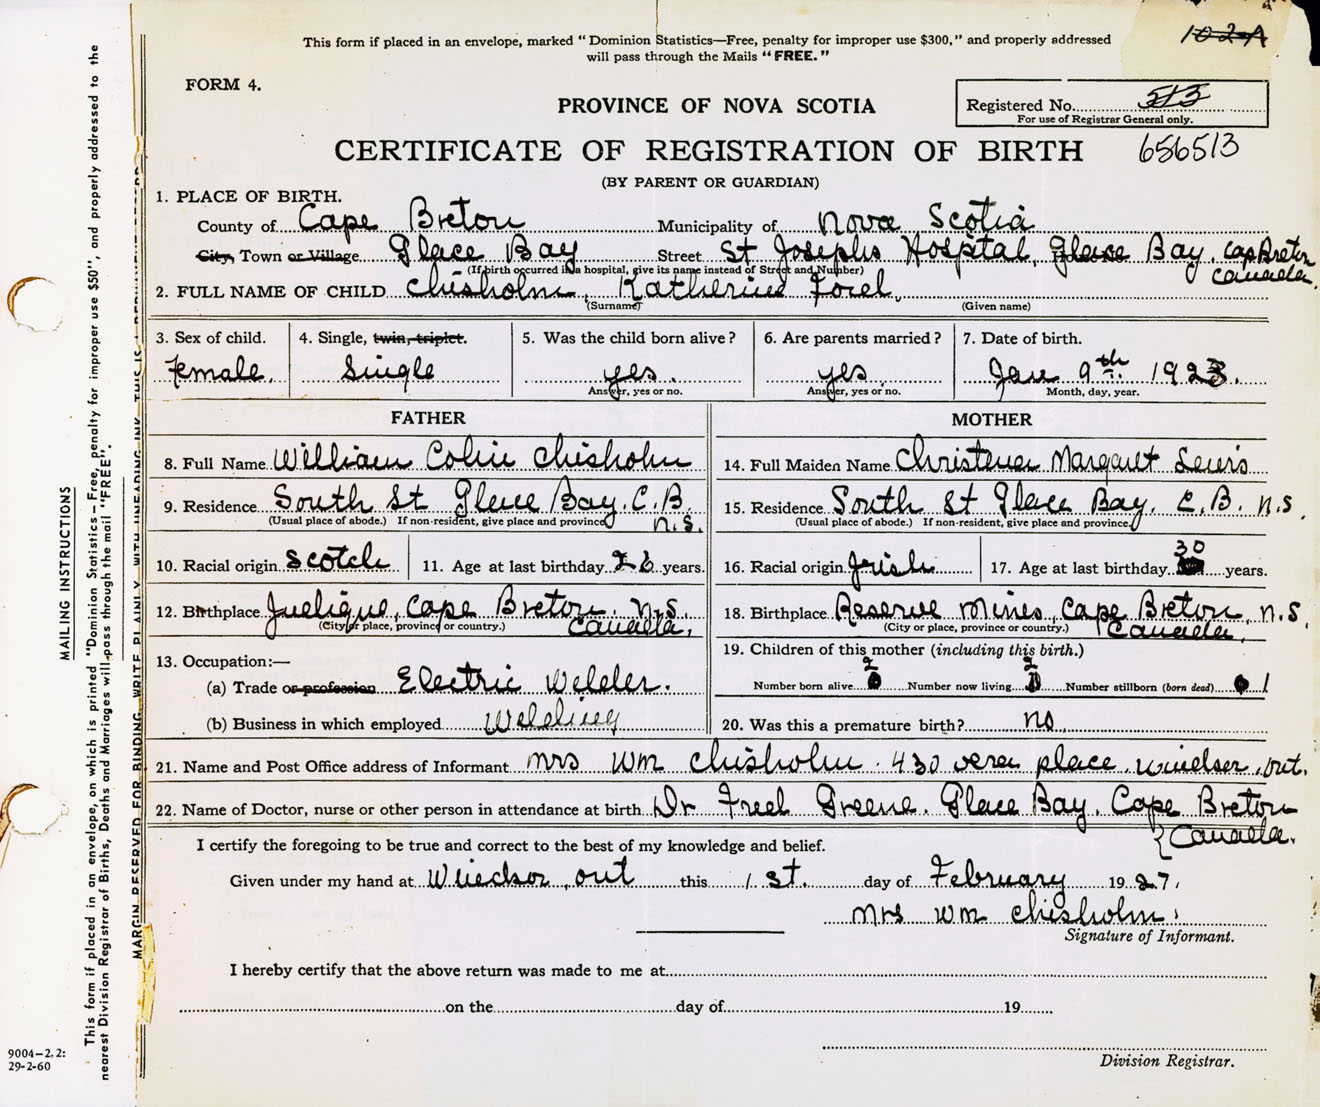 This form if placed in an envelope, marked "Dominion Statistics—Free, penalty for improper use $300," and properly addressed
will pass through the Mails "FREE."
102-A
FORM 4.
PROVINCE OF NOVA SCOTIA
Registered No. 513
For use of Registrar General only.
CERTIFICATE OF REGISTRATION OF BIRTH
656513
(BY PARENT OR GUARDIAN)
1. PLACE OF BIRTH.
County of Cape Breton Municipality of Nova Scotia
City, Town or Village Glace Bay Street St Josephs Hospital, Glace Bay. Cap Breton
(If birth occurred in a hospital, give its name instead of Street and Number) Canada.
2. FULL NAME OF CHILD Chisholm, Katherine
(Surname) (Given name)
3. Sex of child. 4. Single, twin, triplet. 5. Was the child born alive? 6. Are parents married? 7. Date of birth.
Female. Single yes. yes. Jan 9th 1923.
Answer, yes or no. Answer, yes or no. Month, day, year.
FATHER MOTHER
8. Full Name William Colin Chisholm 14. Full Maiden Name Margaret Lewis
9. Residence South St Glace Bay. C.B. 15. Residence South St Glace Bay. C.B. N.S.
(Usual place of abode.) If non-resident, give place and province. N.S. (Usual place of abode.) If non-resident, give place and province.
10. Racial origin Scotch 11. Age at last birthday 26 years. 16. Racial origin Irish 17. Age at last birthday 30 years.
12. Birthplace Cape Breton. N.S. 18. Birthplace Reserve Mines, Cape Breton, N.S.
(City or place, province or country.) Canada. (City or place, province or country.) Canada.
13. Occupation:— 19. Children of this mother (including this birth.)
(a) Trade or profession Electric Welder. Number born alive 2 Number now living 2 Number stillborn (born dead) 1
(b) Business in which employed Welding 20. Was this a premature birth? no.
21. Name and Post Office address of Informant Mrs Wm Chisholm. 430 Vera place. Windsor, Ont.
22. Name of Doctor, nurse or other person in attendance at birth Dr Greene. Glace Bay. Cape Breton
Canada.
I certify the foregoing to be true and correct to the best of my knowledge and belief.
Given under my hand at Windsor, Ont this 1st. day of February 1927.
Mrs Wm Chisholm.
Signature of Informant.
I hereby certify that the above return was made to me at
on the day of 19
Division Registrar.
MAILING INSTRUCTIONS
This form if placed in an envelope, on which is printed "Dominion Statistics—Free, penalty for improper use $50", and properly addressed to the
nearest Division Registrar of Births, Deaths and Marriages will pass through the mail "FREE".
MARGIN RESERVED FOR BINDING. WRITE PLAINLY WITH UNFADING INK. THIS IS A PERMANENT RECORD
9004-2.2:
29-2-60